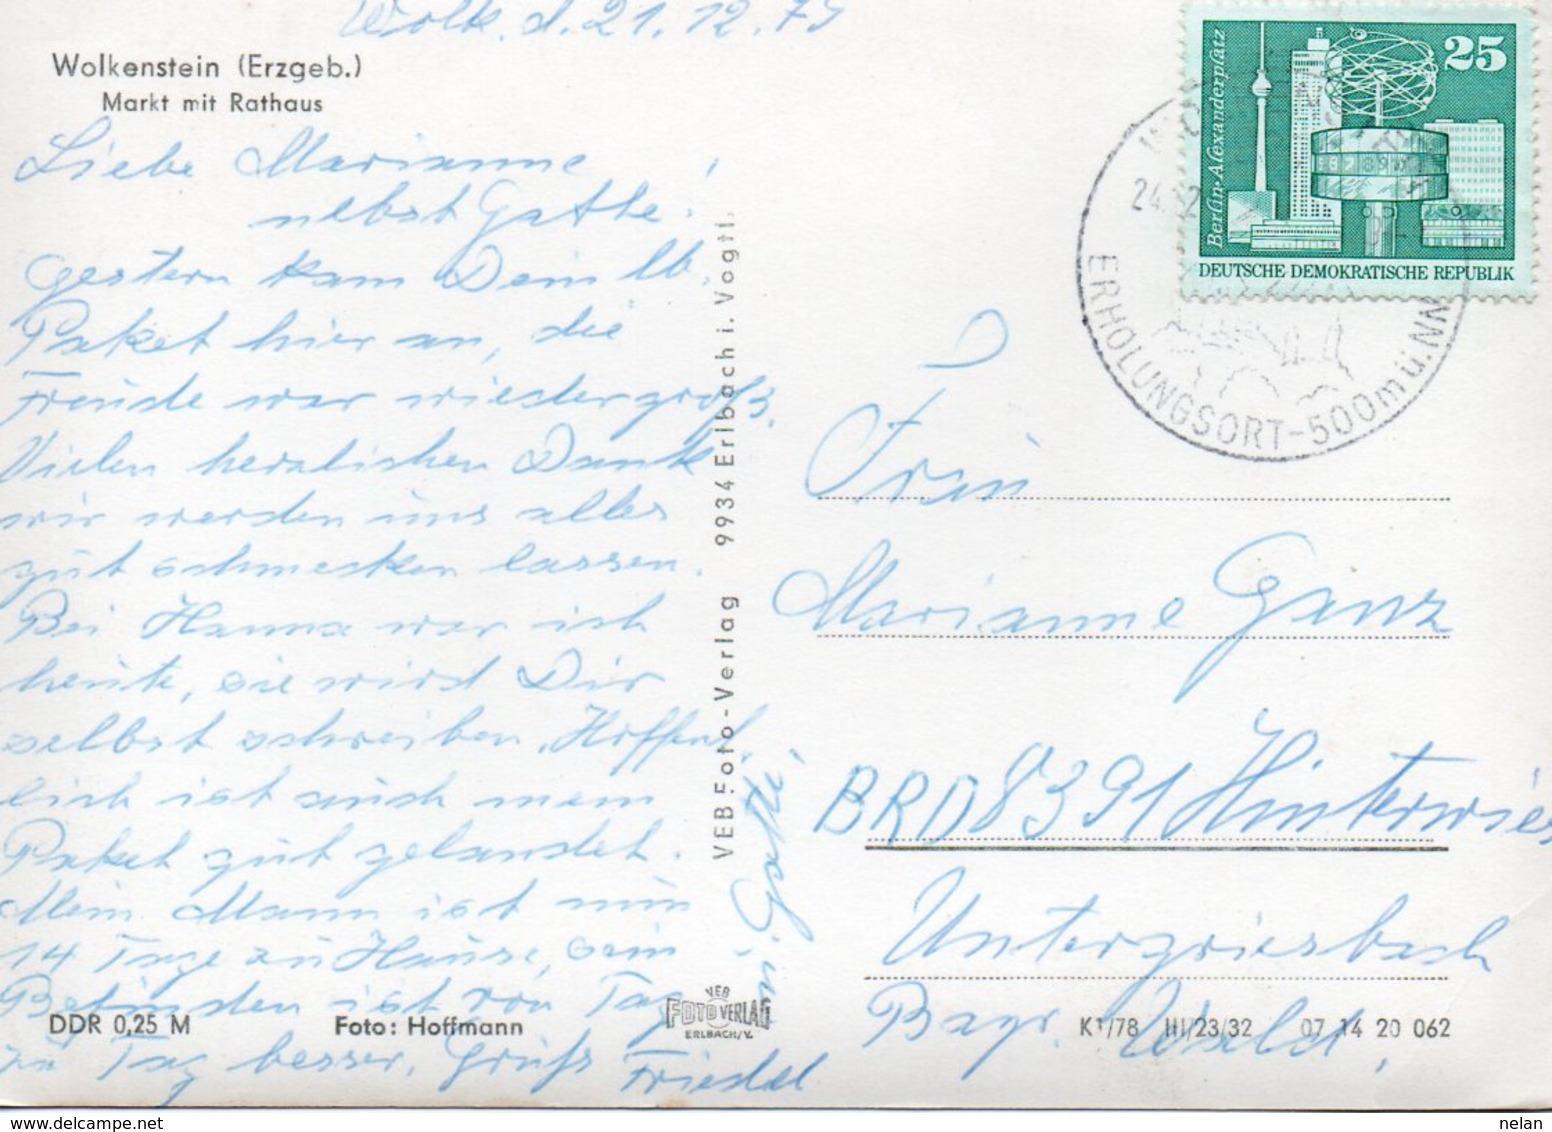 Wolk. d. 21.12.79
Wolkenstein (Erzgeb.)
Markt mit Rathaus
Liebe Marianne
nebst Gatte.
gestern kam Dein lb.
Paket hier an, die
Freude war wiedergroß.
Vielen herzlichen Dank
wir werden uns alles
gut schmecken lassen.
Bei Hanna war ich
heute, sie wird Dir
selbst schreiben. Hoffent-
lich ist auch mein
Paket gut gelandet.
Mein Mann ist nun
14 Tage zu Hause, sein
Befinden ist von Tag
zu Tag besser, Gruß Friedel
u. Gatte
DDR 0,25 M
Foto: Hoffmann
VEB Foto-Verlag 9934 Erlbach i. Vogtl.
VEB
FOTO VERLAG
ERLBACH/V.
25
Berlin·Alexanderplatz
DEUTSCHE DEMOKRATISCHE REPUBLIK
24.12
ERHOLUNGSORT-500m ü. NN
Frau
Marianne Ganz
BRD 8391 Hinterwies
Untergriesbach
Bayr. Wald,
K1/78 III/23/32 07 14 20 062
nelan